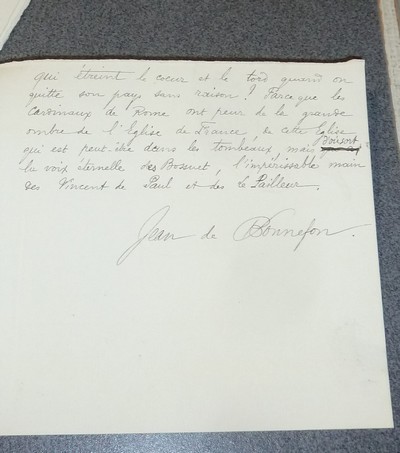 qui étreint le coeur et le tord quand on
quitte son pays sans raison! Parce que les
Cardinaux de Rome ont peur de la grande
ombre de l'Eglise de France, de cette Eglise
qui est peut-être dans les tombeaux, mais d'où sort
la voix éternelle des Bossuet, l'impérissable main
des Vincent de Paul et des le Pailleur.
Jean de Bonnefon.